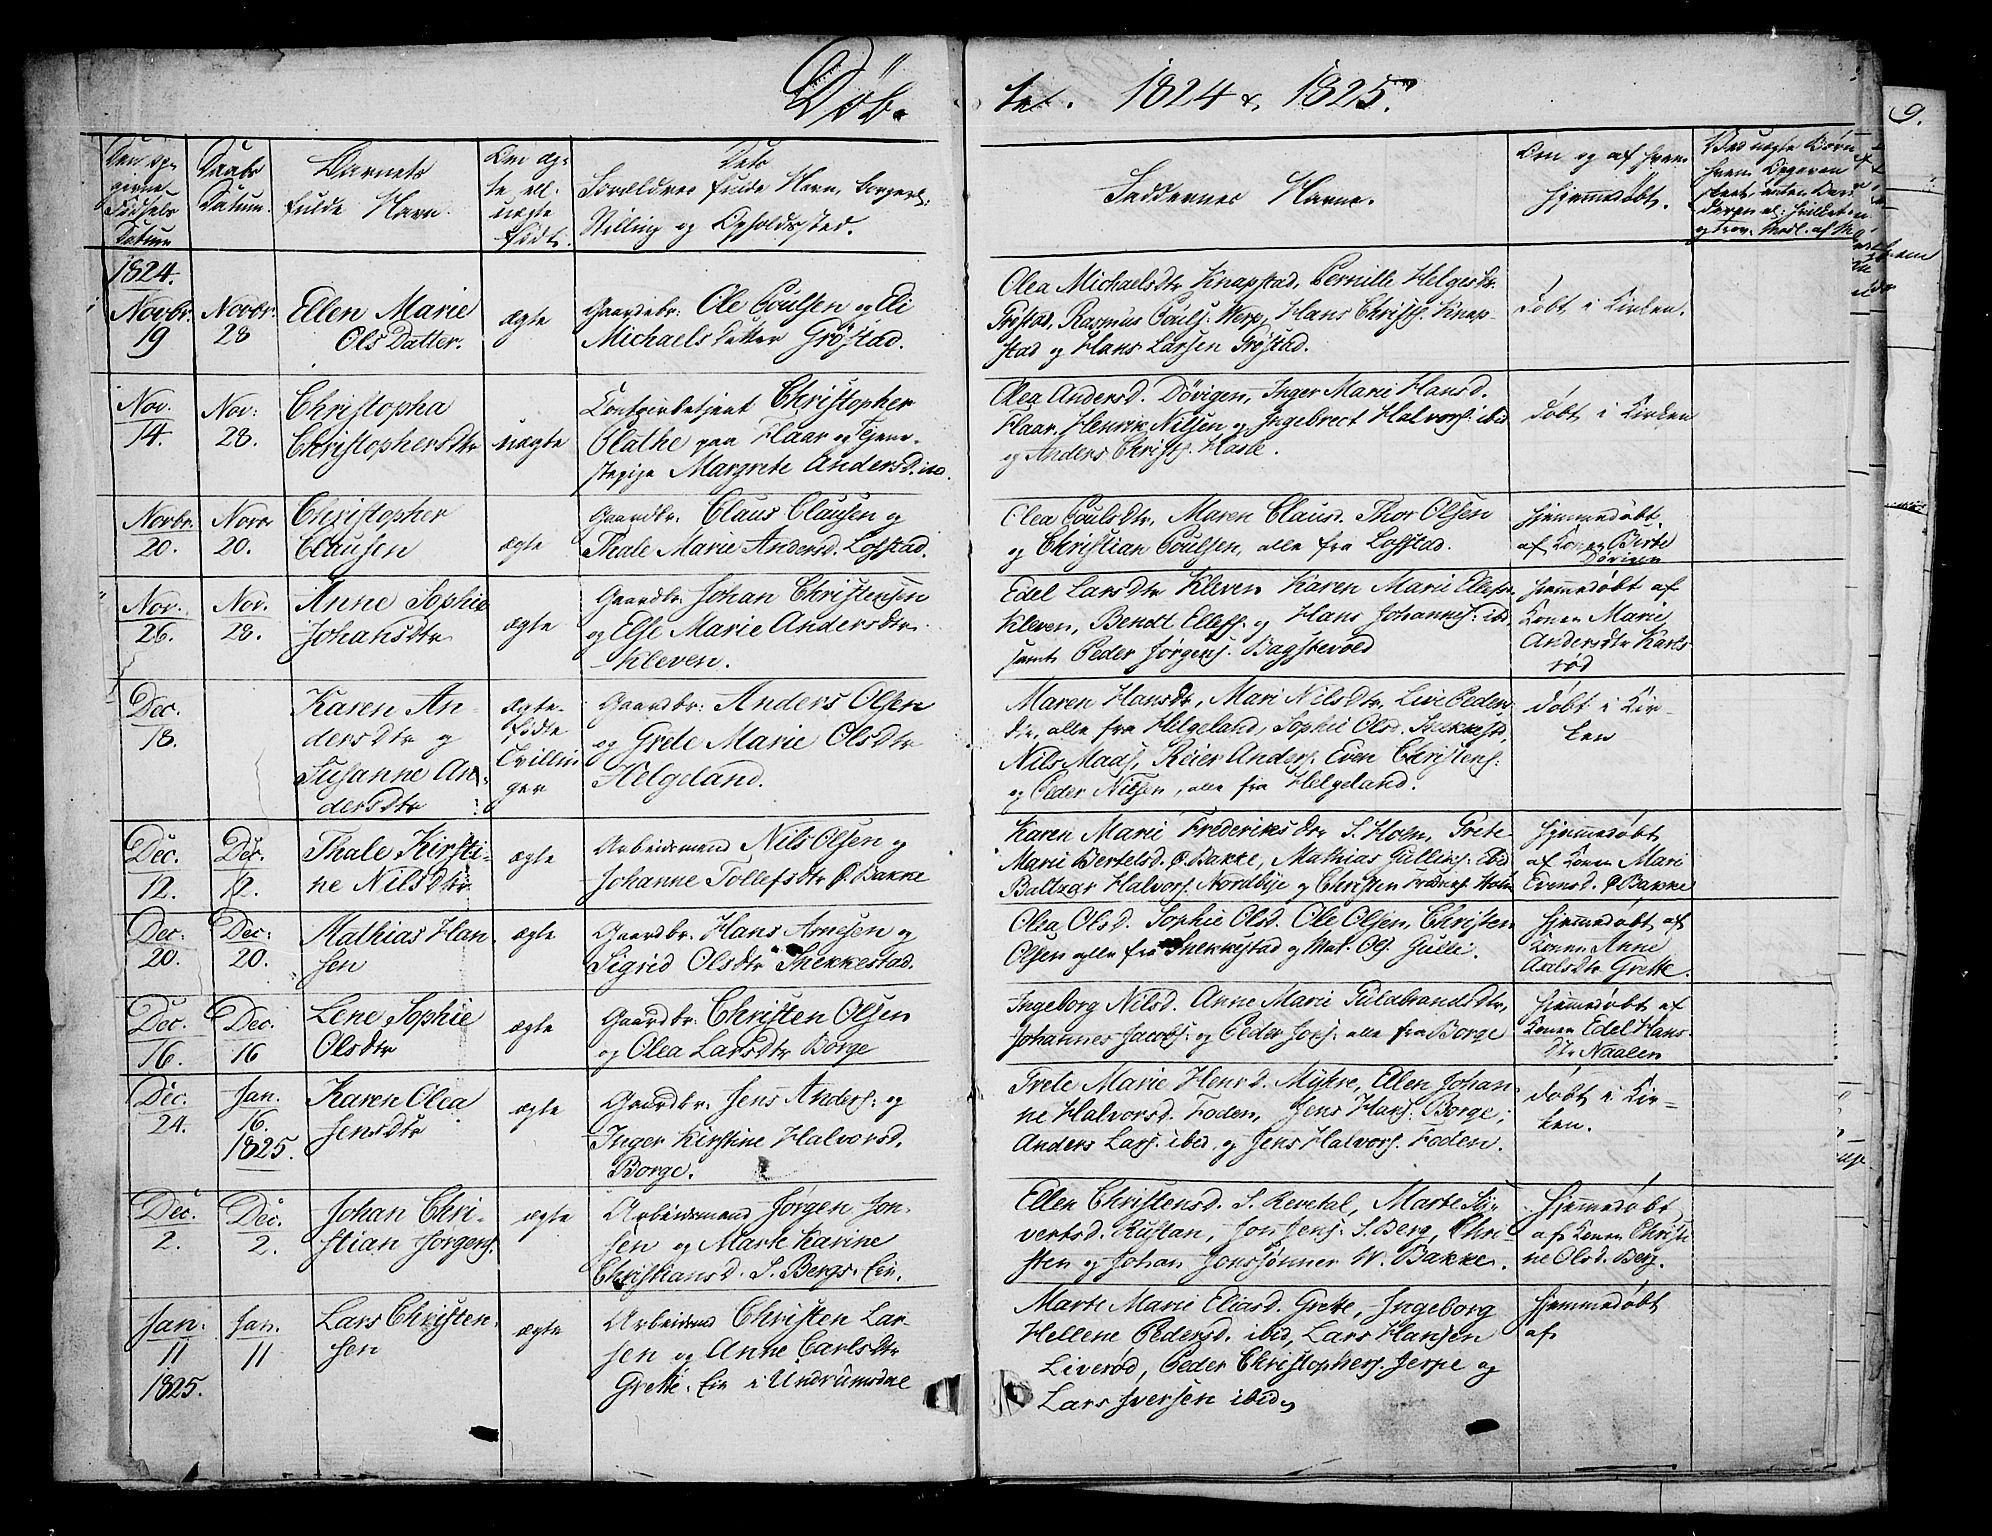 Døb-
te. 1824 & 1825.
9.
Barnets
fulde Navn.
Daabs
Datum.
Om æg-
te ell.
uægte
født.
Dets
Forældres fulde Navn, Borgerl.
Stilling og Opholdssted.
Faddernes Navne.
Om og af hvem
hjemmedøbt.
1824.
Novbr.
19
Novbr:
28
Ellen Marie
Ols Datter.
ægte
Gaardbr: Ole Poulsen og Eli
Michaels Datter Grøstad.
Olea Michaelsdtr Knapstad, Pernille Helgesdtr
Grøstad, Rasmus Pouls. Werp, Hans Christs. Knap-
stad og Hans Larsen Grøstad.
døbt i Kirken.
Nov.
14.
Nov:
28.
Christopha
Christophersdtr
uægte
Christopher
Plathe paa Haar og Tjene-
stepige Margrete Andersd. ibid.
Olea Andersd. Døvigen, Inger Marie Hansd.
Haar, Henrik Nilsen og Ingebrect Halvors: ibid
og Anders Christs. Hasle.
døbt i Kirken
Novbr.
20.
Novbr
20.
Christopher
Clausen
ægte
Gaardbr: Claus Clausen og
Thale Marie Andersd. Lofstad.
Olea Poulsdtr, Maren Clausd. Thor Olsen
og Christian Poulsen, alle fra Lofstad.
hjemmedøbt
af Konen Birte
Døvigen
Nov.
26.
Nov.
28.
Anne Sophie
Johansdtr
ægte
Gaardbr: Johan Christensen
og Else Marie Andersdtr.
Kleven.
Edel Larsdtr Kleven Karen Marie Ellefsd.
Kleven, Bendt Ellefs. og Hans Johannes: ibid
samt Peder Jørgens. Bagstevold
hjemmedøbt af
Konen Marie
Andersdtr Karls
rød
Dec.
18.
Karen An-
dersdtr og
Susanne An-
dersdtr
ægte-
fødte
Tvillin
ger
Gaardbr: Anders Olsen
og Grete Marie Olsdtr
Helgeland.
Maren Hansdtr, Mari Nilsdtr, Live Peders-
dtr, alle fra Helgeland, Sophie Olsd. Stekkestd,
Nils Mads, Reier Anders: Even Christens:
og Peder Nilsen, alle fra Helgeland.
døbt i Kir-
ken
Dec.
12.
Dec.
12.
Thale Kirsti-
ne Nilsdtr
ægte
Arbeidsmand Nils Olsen og
Johanne Tollefsdtr Ø. Bakke
Karen Marie Frederiksdtr S. Holm, Grete
Marie Bertelsd. Ø. Bakke, Mathias Gullichs: ibid
Baltzar Halvors. Nordbye og Christen Freders. Holm
hjemmedøbt
af Konen Mari
Evensd. Ø. Bakke
Dec:
20.
Dec:
20.
Mathias Han
sen
ægte
Gaardbr. Hans Arnesen og
Sigrid Olsdtr Stekkestad.
Olea Olsd. Sophie Olsd. Ole Olsen, Christen
Olsen alle fra Stekkestad og Mat. Ols. Gulli.
hjemmedøbt af
Konen Anne
Axelsdtr Grette.
Dec.
16.
Dec.
16
Lene Sophie
Olsdtr
ægte
Gaardbr: Christen Olsen
og Olea Larsdtr Borge
Ingeborg Nilsd. Anne Marie Guldbrandsdtr,
Johannes Jacobs: og Peder Jons: alle fra Borge
hjemmedøbt af
Konen Edel Hans-
dtr Naalen
Dec.
24.
Jan.
16.
1825.
Karen Olea
Jensdtr
ægte
Gaardbr: Jens Anders: og
Inger Kirstine Halvorsd.
Borge.
Grete Marie Henrd. Mykre, Ellen Johan-
ne Halvorsd. Foden, Jens Hans. Borge,
Anders Lars: ibid. og Jens Halvors. Foden.
døbt i Kir-
ken.
Dec.
2.
Dec.
2.
Johan Chri-
stian Jørgens.
ægte
Arbeidsmand Jørgen Jon-
sen og Marte Karine
Christiansd. S. Bergs. Ein.
Ellen Christensd. S. Revetal, Marte Sy-
vertsd. Rustan, Jon Jens: S. Berg, Chri-
sten og Johan Jonssønner W. Bakke.
hjemmedøbt
af Konen Christi
ne Olsd. Berg.
Jan:
11
1825.
Jan.
11
Lars Christen-
sen
ægte
Arbeidsmd Christen Lar
sen og Anne Carlsdtr
Grette: Ein i Undrumsdal
Marte Marie Eliasd. Grette, Ingeborg
Hellene Pedersd. ibid, Lars Hansen
Liverød, Peder Christophers. Jerpe og
Lars Iversen ibid,
hjemmedøbt
af